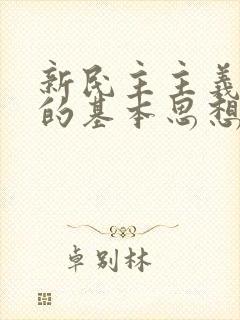 新民主主義
的基本思想
卓别林